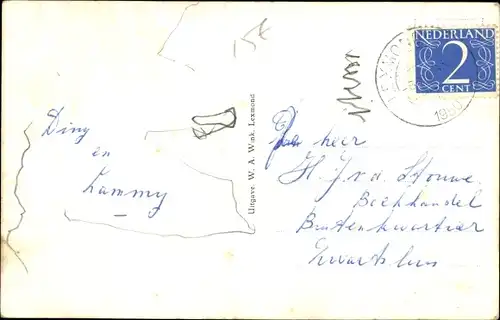 15ct
LEXMOND
1950
NEDERLAND
2
CENT
Ding
en
Zammy
Uitgave: W. A. Wink, Lexmond
heer
H. J. v d Stouwe
Boekhandel
Buitenkwartier
Zwartsluis